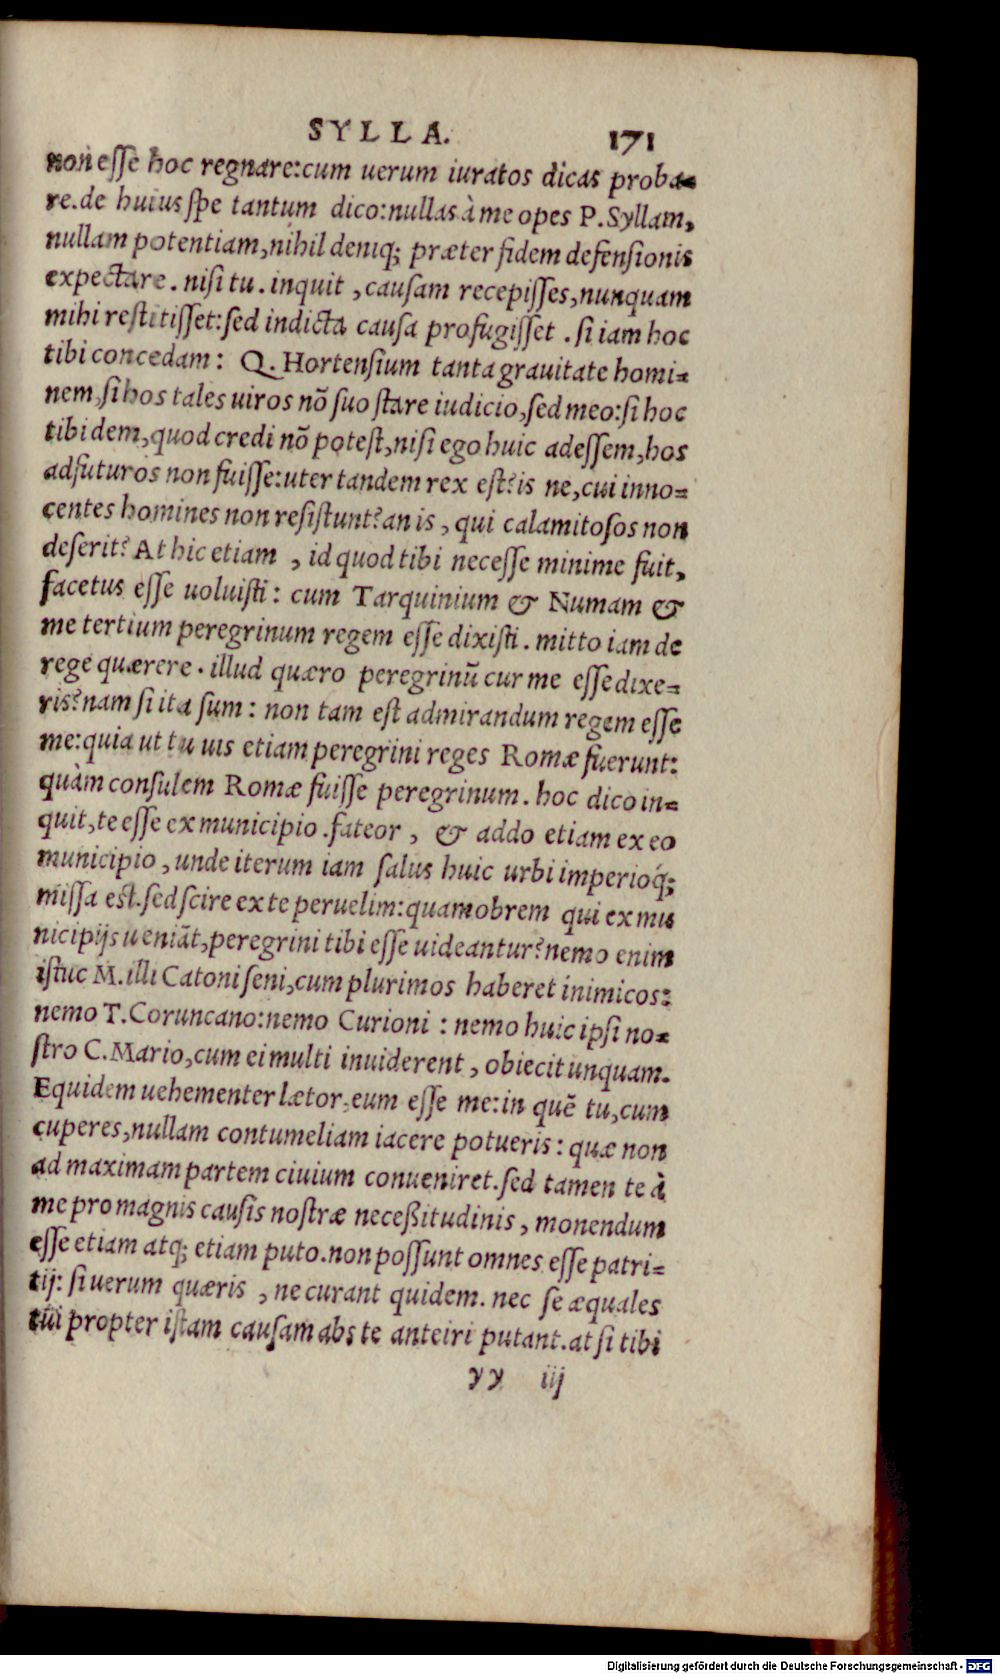 SYLLA. 171
non esse hoc regnare:cum uerum iuratos dicas proba-
re.de huius spe tantum dico:nullas à me opes P.Syllam,
nullam potentiam,nihil deniq; præter fidem defensionis
expectare. nisi tu. inquit, causam recepisses,nunquam
mihi restitisset:sed indicta causa profugisset. si iam hoc
tibi concedam: Q. Hortensium tanta grauitate homi-
nem,si hos tales uiros nō suo stare iudicio,sed meo:si hoc
tibi dem,quod credi nō potest,nisi ego huic adessem,hos
adfuturos non fuisse:uter tandem rex est?is ne,cui inno-
centes homines non resistunt?an is, qui calamitosos non
deserit? At hic etiam, id quod tibi necesse minime fuit,
facetus esse uoluisti: cum Tarquinium & Numam &
me tertium peregrinum regem esse dixisti. mitto iam de
rege quærere. illud quæro peregrinū cur me esse dixe-
ris?nam si ita sum: non tam est admirandum regem esse
me:quia ut tu uis etiam peregrini reges Romæ fuerunt:
quàm consulem Romæ fuisse peregrinum. hoc dico in-
quit,te esse ex municipio.fateor, & addo etiam ex eo
municipio, unde iterum iam salus huic urbi imperioq́;
missa est.sed scire ex te peruelim:quamobrem qui ex mu
nicipijs ueniāt,peregrini tibi esse uideantur?nemo enim
istuc M.illi Catoni seni,cum plurimos haberet inimicos:
nemo T.Coruncano:nemo Curioni: nemo huic ipsi no-
stro C.Mario,cum ei multi inuiderent, obiecit unquam.
Equidem uehementer lætor,eum esse me:in quē tu,cum
cuperes,nullam contumeliam iacere potueris: quæ non
ad maximam partem ciuium conueniret.sed tamen te à
me pro magnis causis nostræ neceßitudinis, monendum
esse etiam atq; etiam puto.non possunt omnes esse patri-
tij: si uerum quæris, ne curant quidem. nec se æquales
tui propter istam causam abs te anteiri putant.at si tibi
yy iij
Digitalisierung gefördert durch die Deutsche Forschungsgemeinschaft - DFG